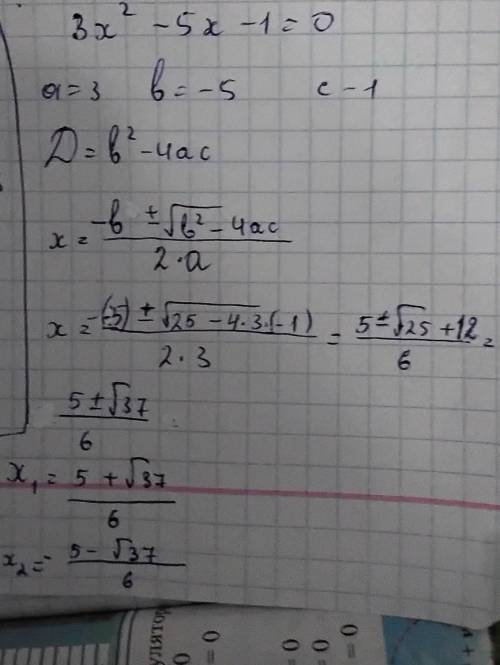 3x² - 5x - 1 = 0
a = 3 b = -5 c - 1
D = b² - 4ac
x = (-b ± √(b² - 4ac)) / (2·a)
x = (-(-5) ± √(25 - 4·3·(-1))) / (2·3) = (5 ± √25 + 12) / 6 =
(5 ± √37) / 6
x₁ = (5 + √37) / 6
x₂ = (5 - √37) / 6
улятор
= 0
= 0
0
0
0